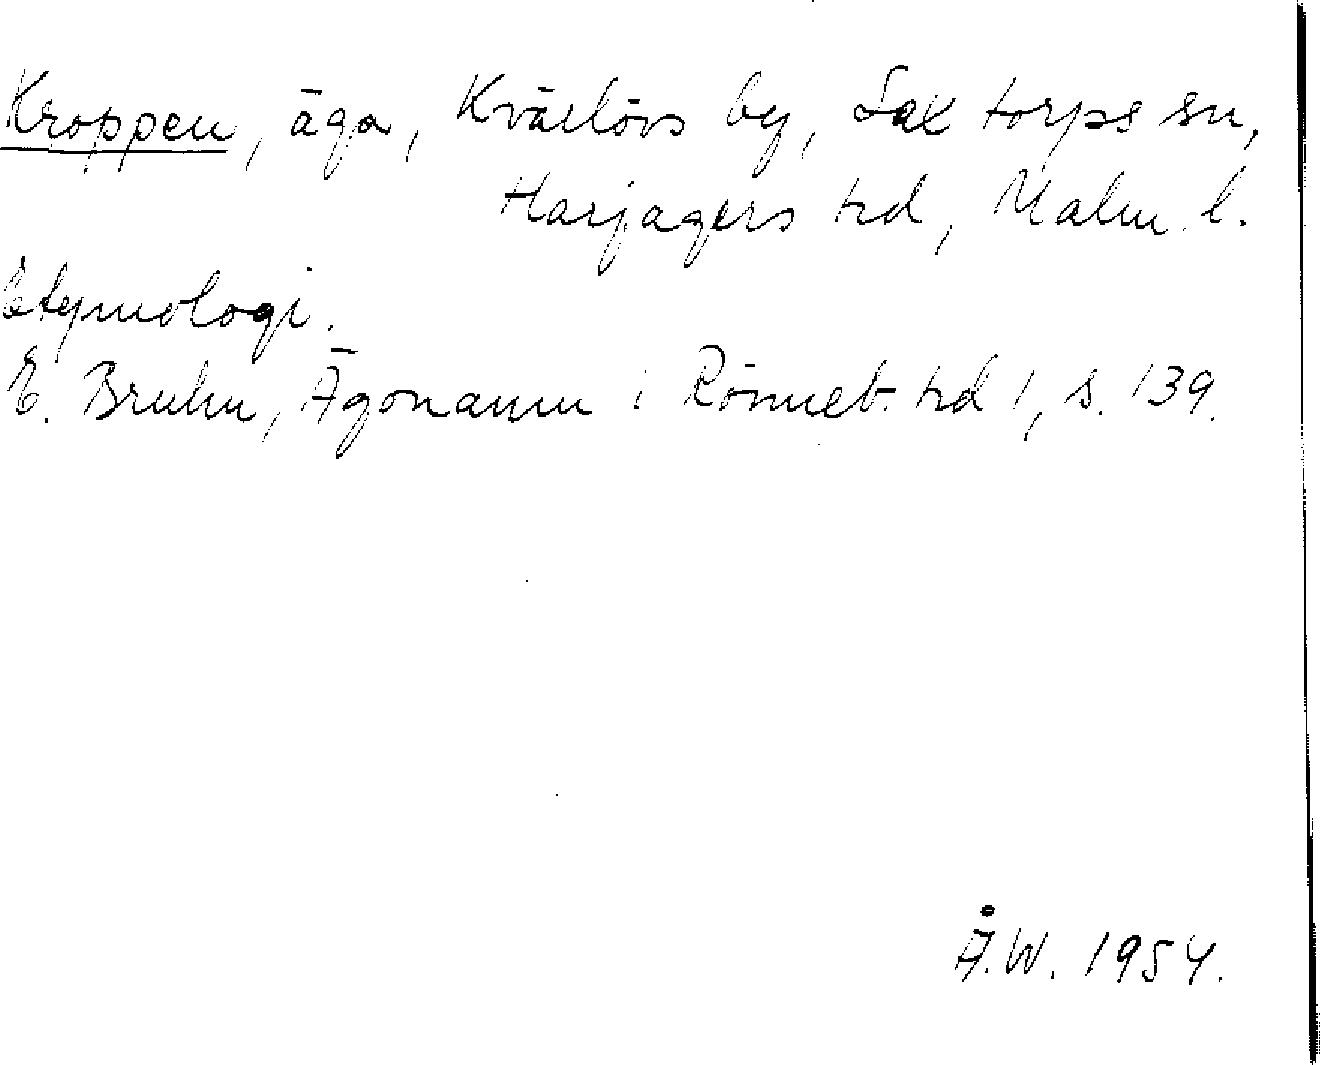 Kroppen, äga, Kvärlövs by, Saxtorps sn,
Harjagers hd, Malm. l.
Etymologi.
E. Bruhn, Ägonamn i Rönneb. hd 1, s. 139.
Å.W. 1954.